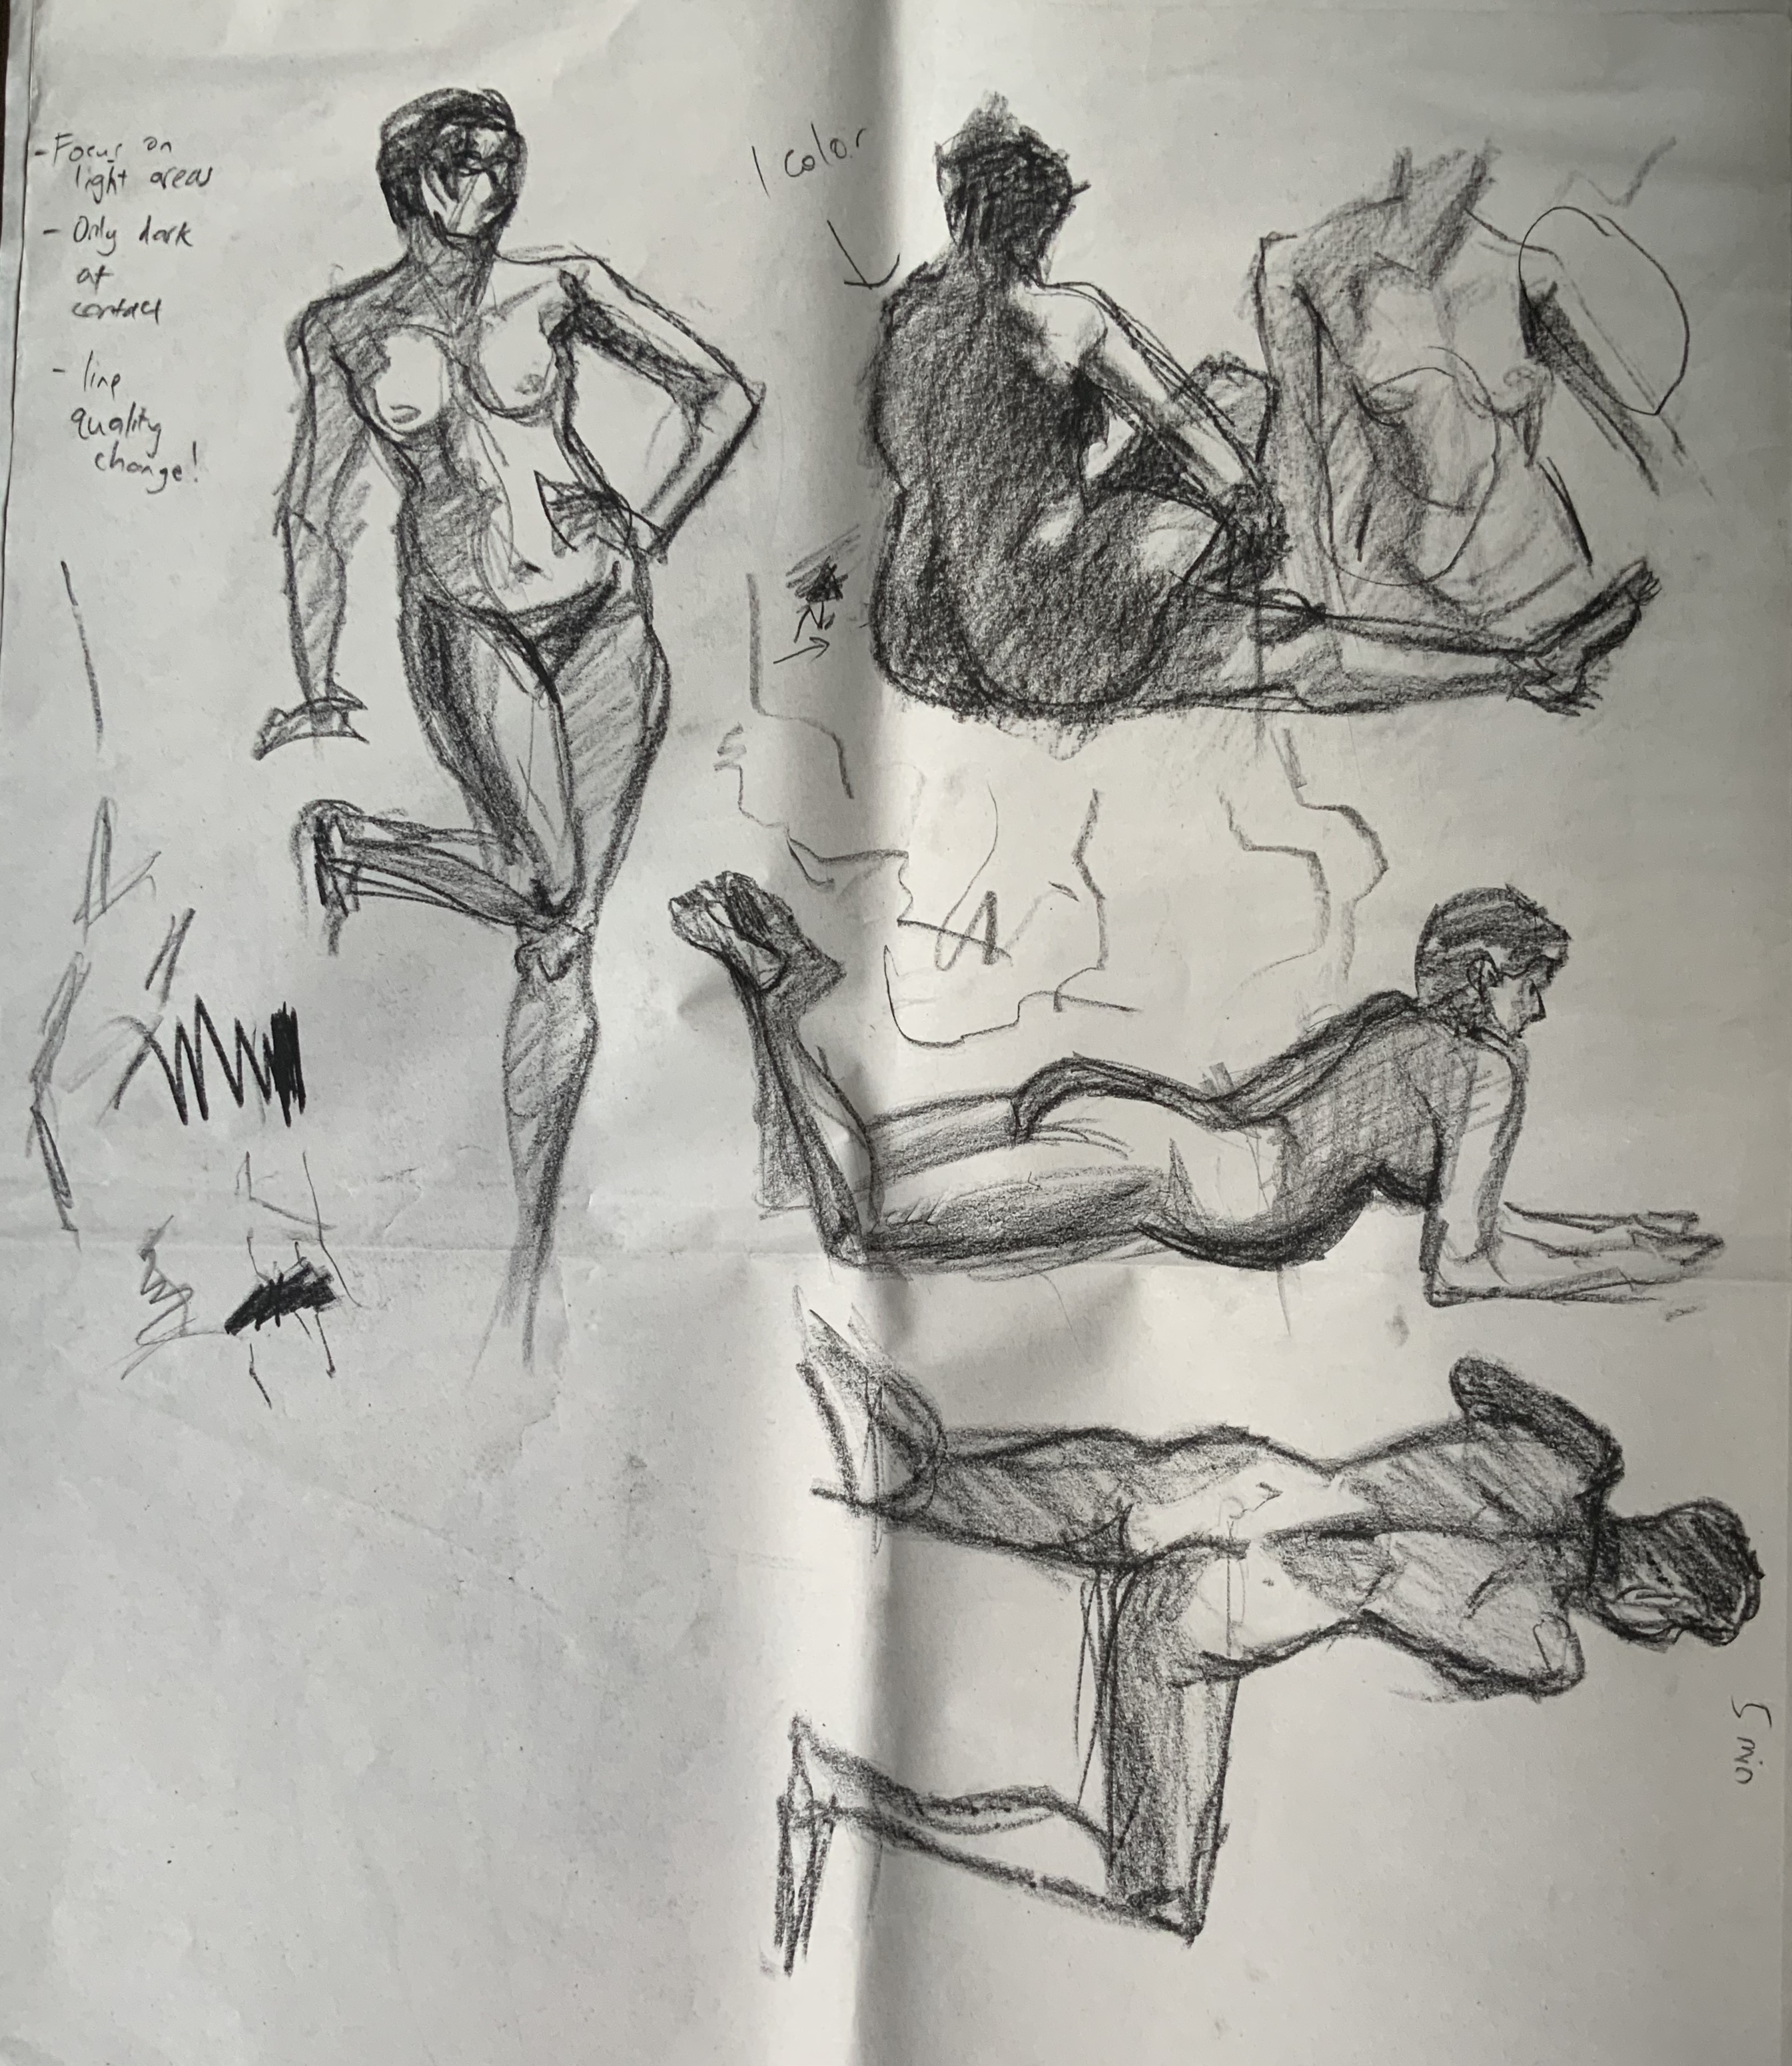 - Focus on
light areas
- Only dark
at
contact
- line
quality
change!
1 color
5 min